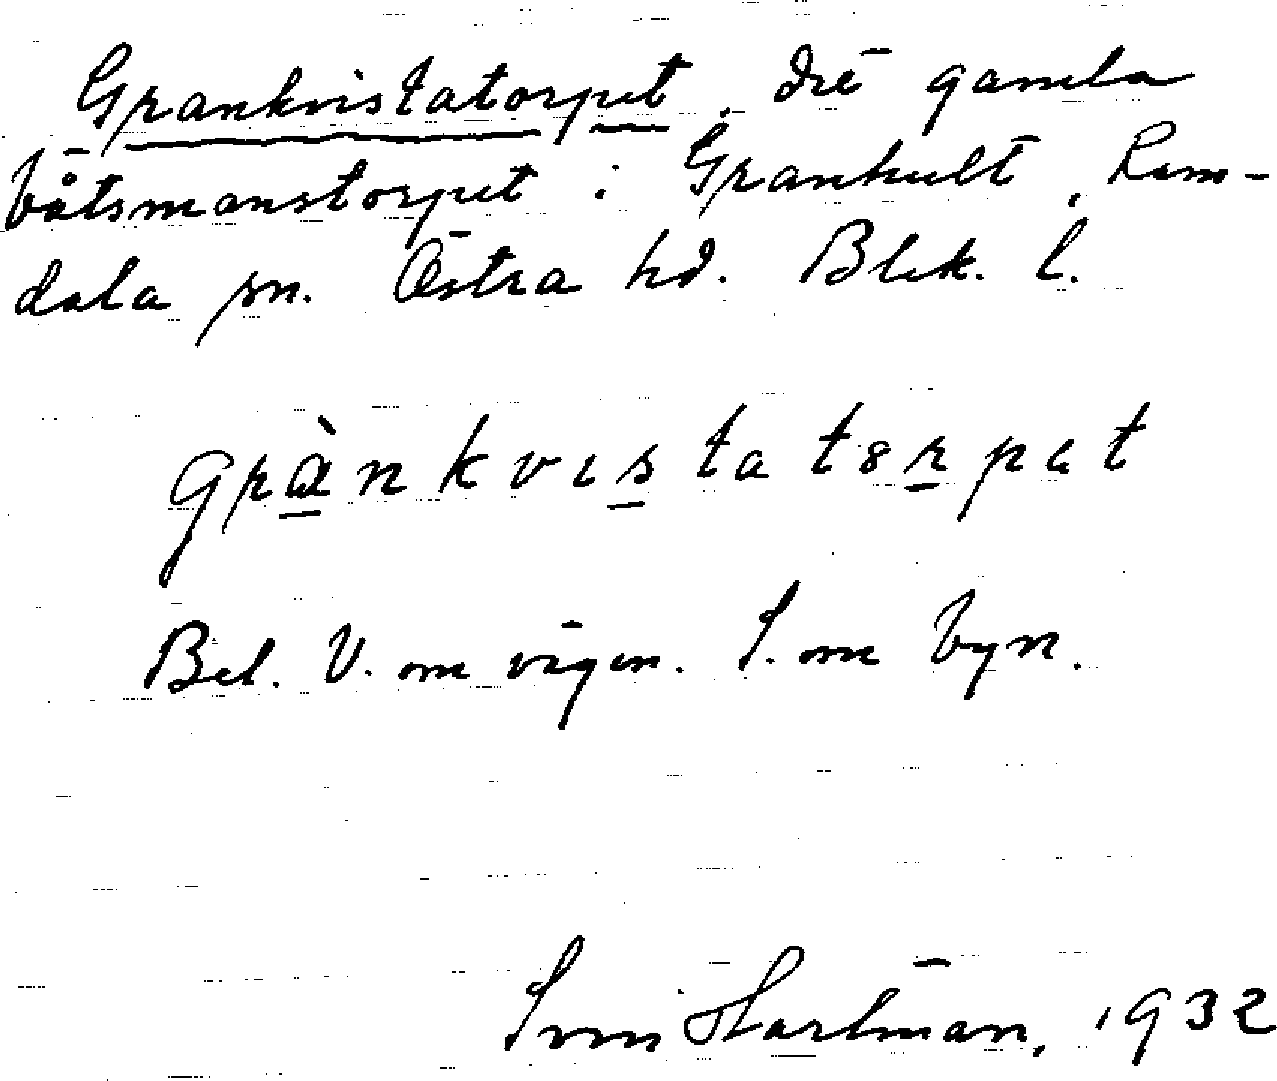 Grankvistatorpet, det gamla
båtsmanstorpet i Grankult, Ram-
dala sn. Östra hd. Blek. l.
grànkvıstatɵrpət
Bel. V. om vägen. S. om byn.
Hartman, 1932